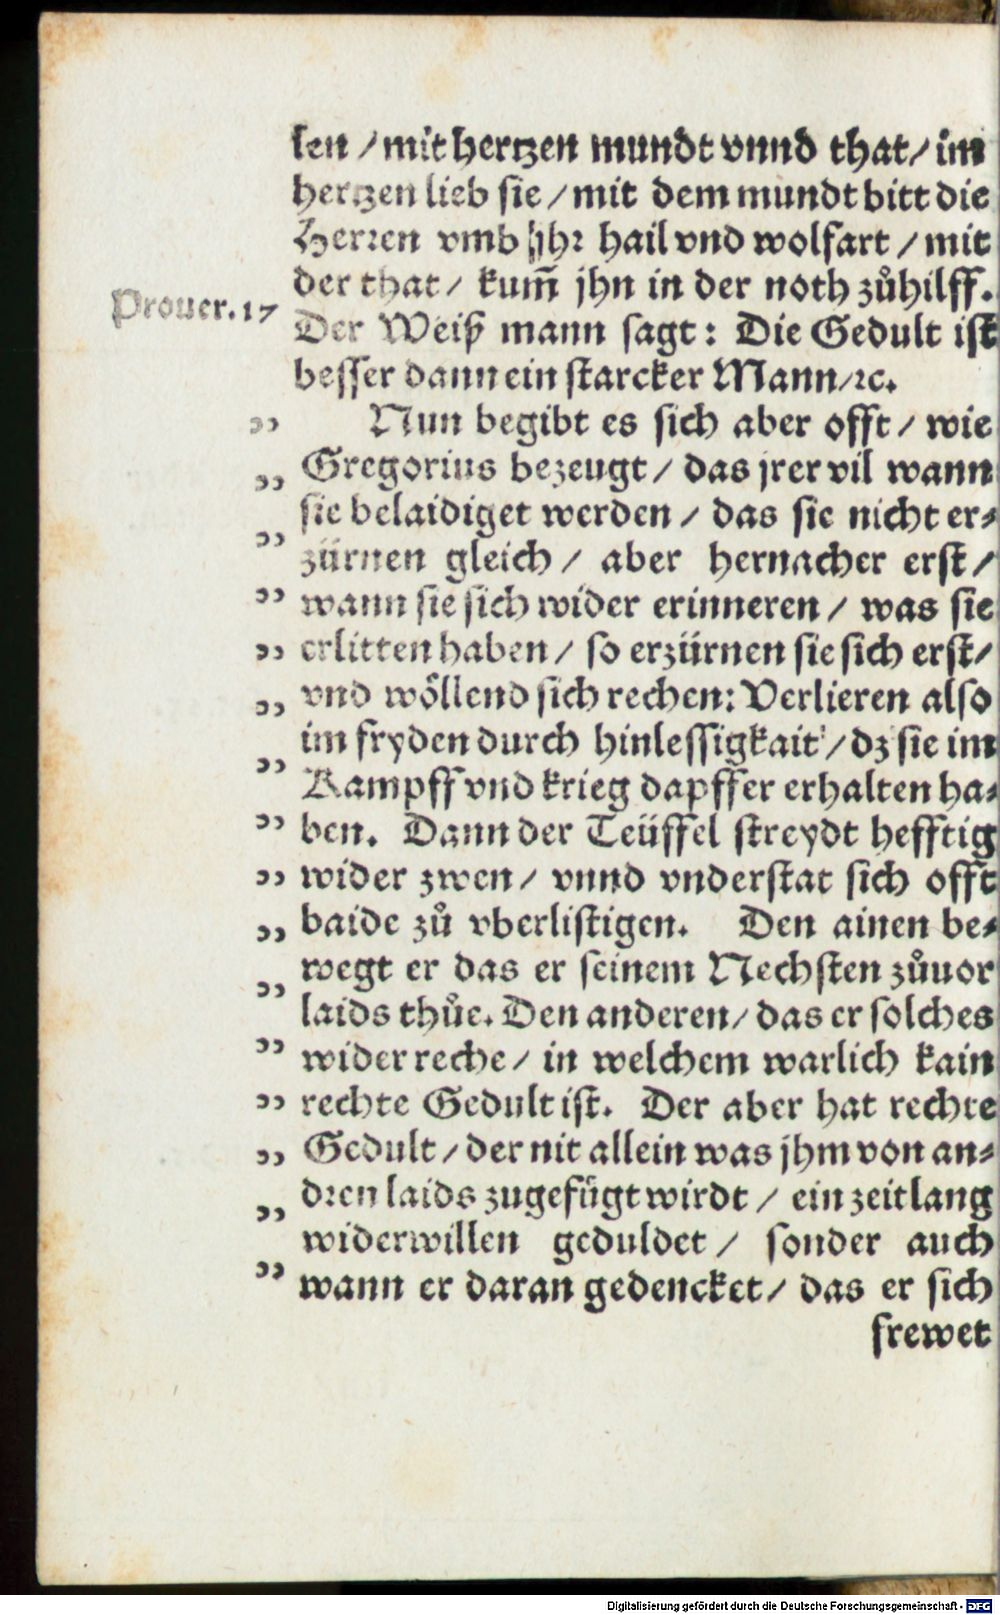 len / mit hertzen mundt vnnd that / im
hertzen lieb sie / mit dem mundt bitt die
Herren vmb jhr hail vnd wolfart / mit
der that / kum̃ jhn in der noth zůhilff.
Prouer. 17
Der Weiß mann sagt: Die Gedult ist
besser dann ein starcker Mann / ꝛc.
Nun begibt es sich aber offt / wie
Gregorius bezeugt / das jrer vil wann
sie belaidiget werden / das sie nicht er⸗
zürnen gleich / aber hernacher erst /
wann sie sich wider erinneren / was sie
erlitten haben / so erzürnen sie sich erst /
vnd wöllend sich rechen: Verlieren also
im fryden durch hinlessigkait / dz sie im
Kampff vnd krieg dapffer erhalten ha⸗
ben. Dann der Teüffel streydt hefftig
wider zwen / vnnd vnderstat sich offt
baide zů vberlistigen. Den ainen be⸗
wegt er das er seinem Nechsten zůuor
laids thůe. Den anderen / das er solches
wider reche / in welchem warlich kain
rechte Gedult ist. Der aber hat rechte
Gedult / der nit allein was jhm von an⸗
dren laids zugefügt wirdt / ein zeitlang
widerwillen geduldet / sonder auch
wann er daran gedencket / das er sich
frewet
Digitalisierung gefördert durch die Deutsche Forschungsgemeinschaft - DFG